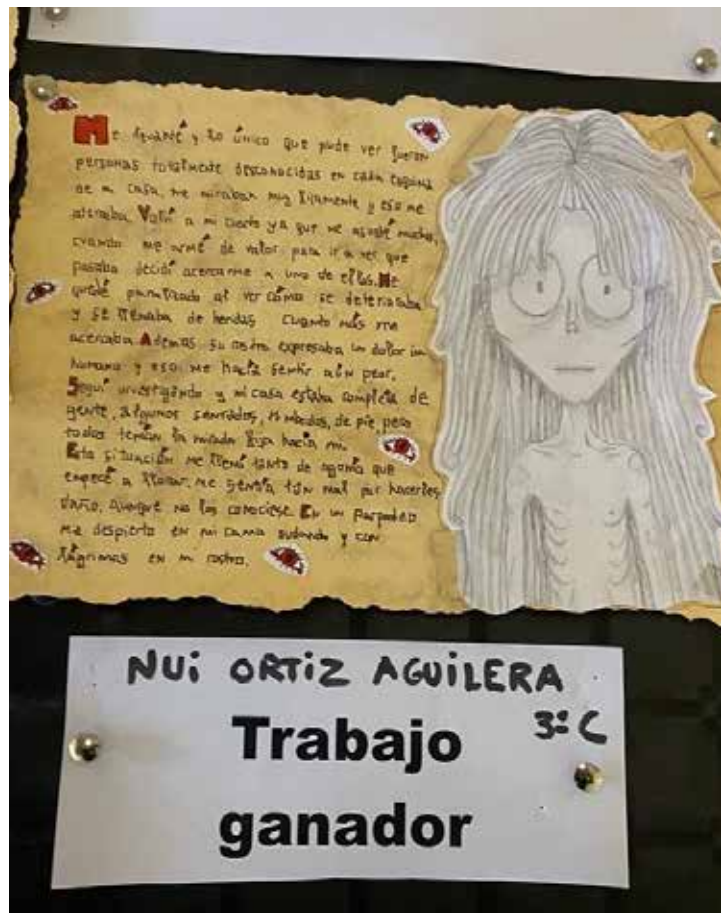 Me levanté y lo único que pude ver fueron
personas totalmente desconocidas en cada esquina
de mi casa, me miraban muy fijamente y eso me
aterraba. Volví a mi cuarto ya que me asusté mucho,
cuando me armé de valor para ir a ver que
pasaba decidí acercarme a uno de ellos. Me
quedé paralizado al ver cómo se deterioraba
y se llenaba de heridas cuanto más me
acercaba. Además su rostro expresaba un dolor in
humano y eso me hacía sentir aún peor.
Seguí investigando y mi casa estaba completa de
gente, algunos sentados, de pie, pero
todos tenían la mirada fija hacia mi.
Esta situación me llenó tanto de agonía que
empecé a llorar. me sentía tan mal por hacerles
daño. Aunque no los conociese. En un parpadeo
me despierto en mi cama sudando y con
lágrimas en mi rostro.
NUi ORTiZ AGUiLERA
3º C
Trabajo
ganador